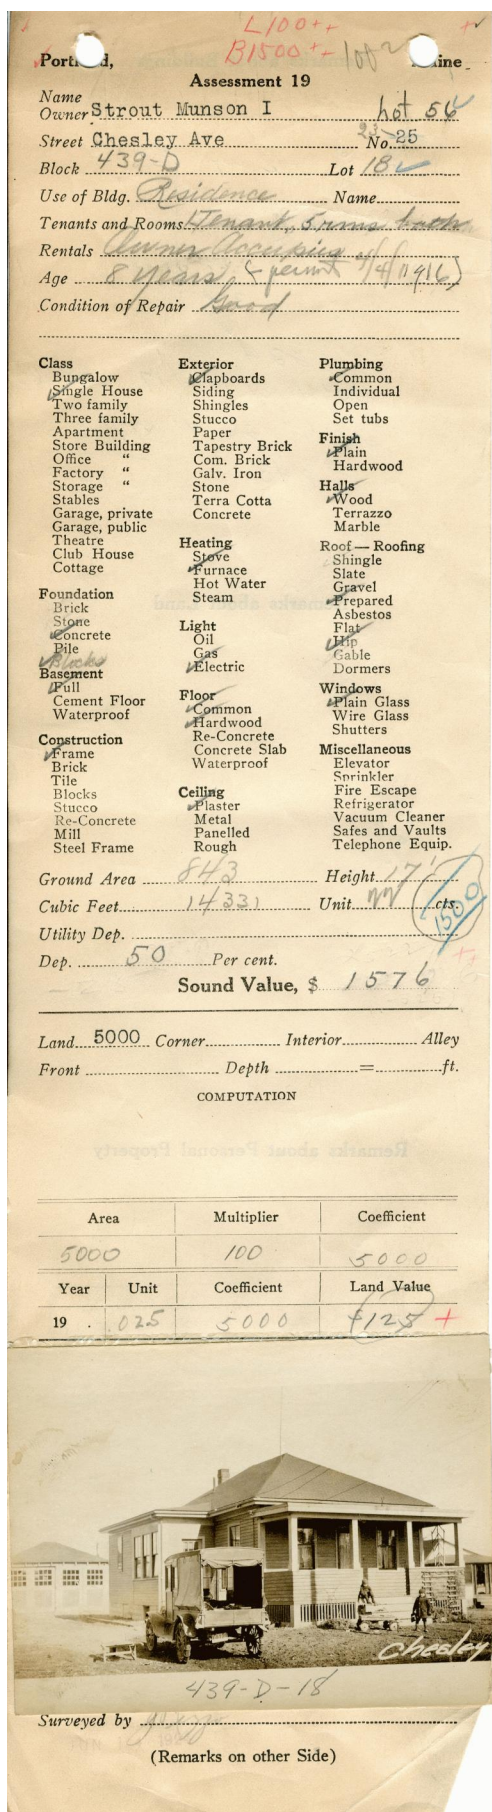 L100++
B1500++ 1002
Portland, Maine
Assessment 19
Name
Owner Strout Munson I Lot 56
Street Chesley Ave No. 23-25
Block 439-D Lot 18
Use of Bldg. Residence Name
Tenants and Rooms 1 Tenant, 5 rms bath
Rentals Owner Occupied
Age 8 years (permit 1916)
Condition of Repair Good
Class
Bungalow
Single House
Two family
Three family
Apartment
Store Building
Office "
Factory "
Storage "
Stables
Garage, private
Garage, public
Theatre
Club House
Cottage
Foundation
Brick
Stone
Concrete
Pile
Blocks
Basement
Full
Cement Floor
Waterproof
Construction
Frame
Brick
Tile
Blocks
Stucco
Re-Concrete
Mill
Steel Frame
Exterior
Clapboards
Siding
Shingles
Stucco
Paper
Tapestry Brick
Com. Brick
Galv. Iron
Stone
Terra Cotta
Concrete
Heating
Stove
Furnace
Hot Water
Steam
Light
Oil
Gas
Electric
Floor
Common
Hardwood
Re-Concrete
Concrete Slab
Waterproof
Ceiling
Plaster
Metal
Panelled
Rough
Plumbing
Common
Individual
Open
Set tubs
Finish
Plain
Hardwood
Halls
Wood
Terrazzo
Marble
Roof — Roofing
Shingle
Slate
Gravel
Prepared
Asbestos
Flat
Hip
Gable
Dormers
Windows
Plain Glass
Wire Glass
Shutters
Miscellaneous
Elevator
Sprinkler
Fire Escape
Refrigerator
Vacuum Cleaner
Safes and Vaults
Telephone Equip.
Ground Area 843 Height 17'
Cubic Feet 14331 Unit 22 cts.
1500
Utility Dep.
Dep. 50 Per cent.
Sound Value, $ 1576
Land 5000 Corner Interior Alley
Front Depth = ft.
COMPUTATION
Area Multiplier Coefficient
5000 100 5000
Year Unit Coefficient Land Value
19 . .025 5000 $125 +
Chesley
439-D-18
Surveyed by
(Remarks on other Side)